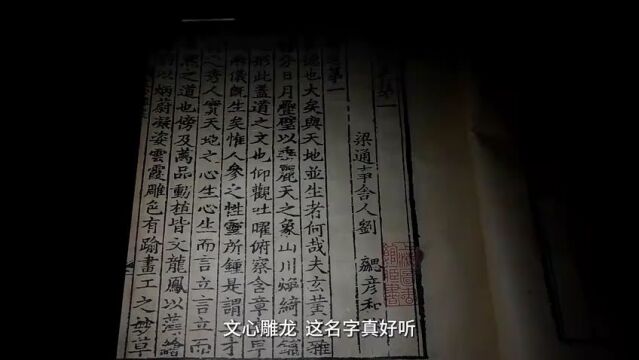 第一
梁通事舍人劉 勰彥和
第一
德也大矣與天地並生者何哉夫玄黃雜
分日月疊璧以垂麗天之象山川煥綺鋪
形此蓋道之文也仰觀吐曜俯察含章
兩儀既生矣惟人參之性靈所鍾是謂才
之秀人實天地之心生心生而言立言立而
然之道也傍及萬品動植皆文龍鳳以藻繪
豹以炳蔚凝姿雲霞雕色有踰畫工之妙草
文心雕龙 这名字真好听